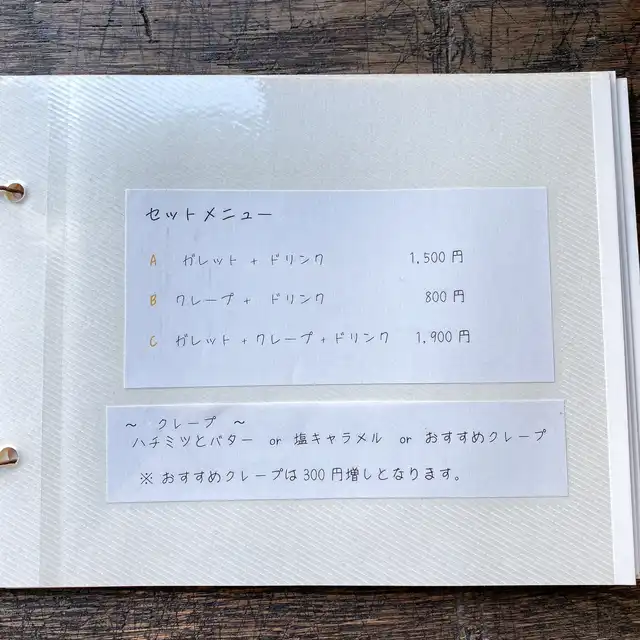 セットメニュー
A ガレット + ドリンク 1,500円
B クレープ + ドリンク 800円
C ガレット + クレープ + ドリンク 1,900円
～ クレープ ～
ハチミツとバター or 塩キャラメル or おすすめクレープ
※ おすすめクレープは300円増しとなります。